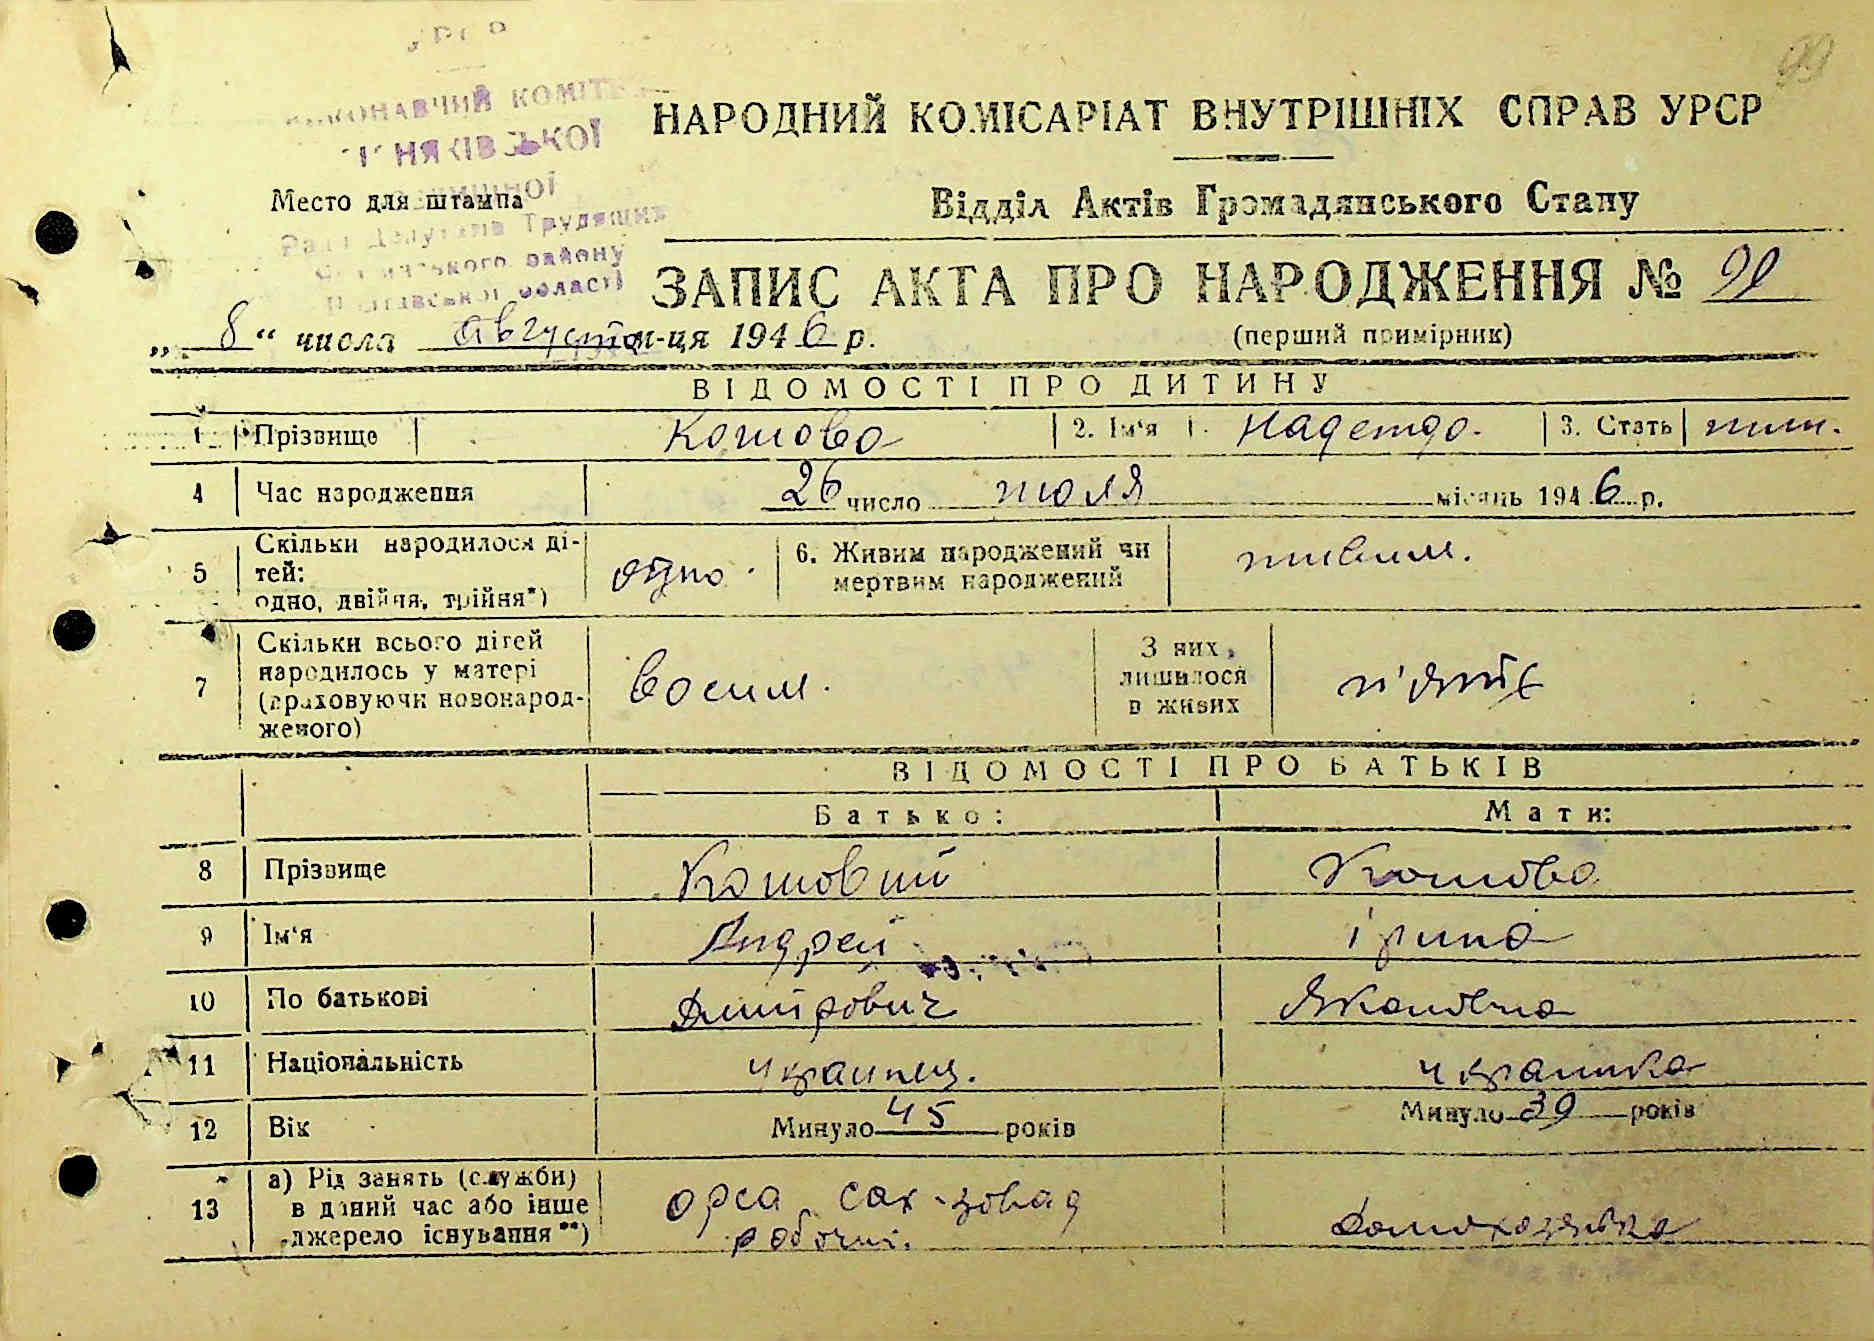 99
УРСР
ВИКОНАВЧИЙ КОМІТЕТ
НЯКІВСЬКОЇ
Ради Депутатів Трудящих
району
Полтавської області
Место для штампа
НАРОДНИЙ КОМІСАРІАТ ВНУТРІШНІХ СПРАВ УРСР
Відділ Актів Громадянського Стану
ЗАПИС АКТА ПРО НАРОДЖЕННЯ № 91
(перший примірник)
„ 8 “ числа августа м-ця 1946 р.
ВІДОМОСТІ ПРО ДИТИНУ
1 Прізвище Кошова 2. Ім‘я Надежда. 3. Стать жін.
4 Час народження 26 число июля місяць 1946 р.
5 Скільки народилося ді-
тей:
одно, двійня, трійня*) одно. 6. Живим народжений чи
мертвим народжений живим.
7 Скільки всього дітей
народилось у матері
(враховуючи новонарод-
женого) восим. З них
лишилося
в живих п'ять
ВІДОМОСТІ ПРО БАТЬКІВ
Батько: Мати:
8 Прізвище Кошовий Кошова
9 Ім‘я Андрей Ірина
10 По батькові Дмитрович Якововна
11 Національність украинец. украинка
12 Вік Минуло 45 років Минуло 39 років
13 а) Рід занять (служби)
в даний час або інше
джерело існування**) орса сах-завод
робочий. Домохозяйка